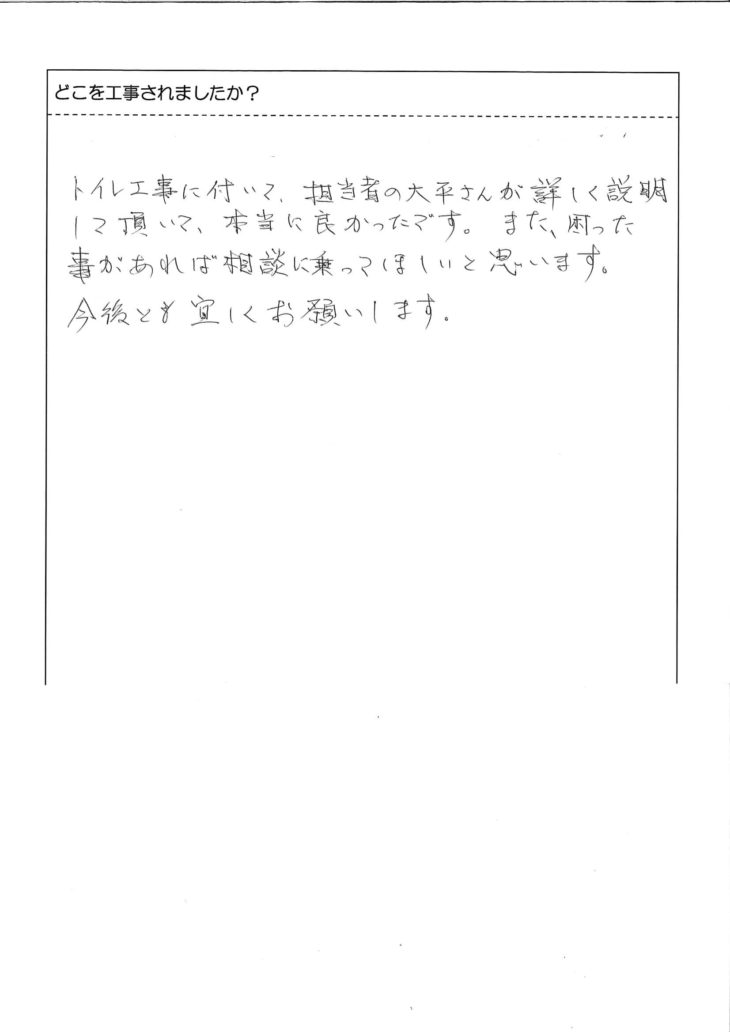 どこを工事されましたか？
トイレ工事に付いて、担当者の大平さんが詳しく説明
して頂いて、本当に良かったです。また、困った
事があれば相談に乗ってほしいと思います。
今後とも宜しくお願いします。